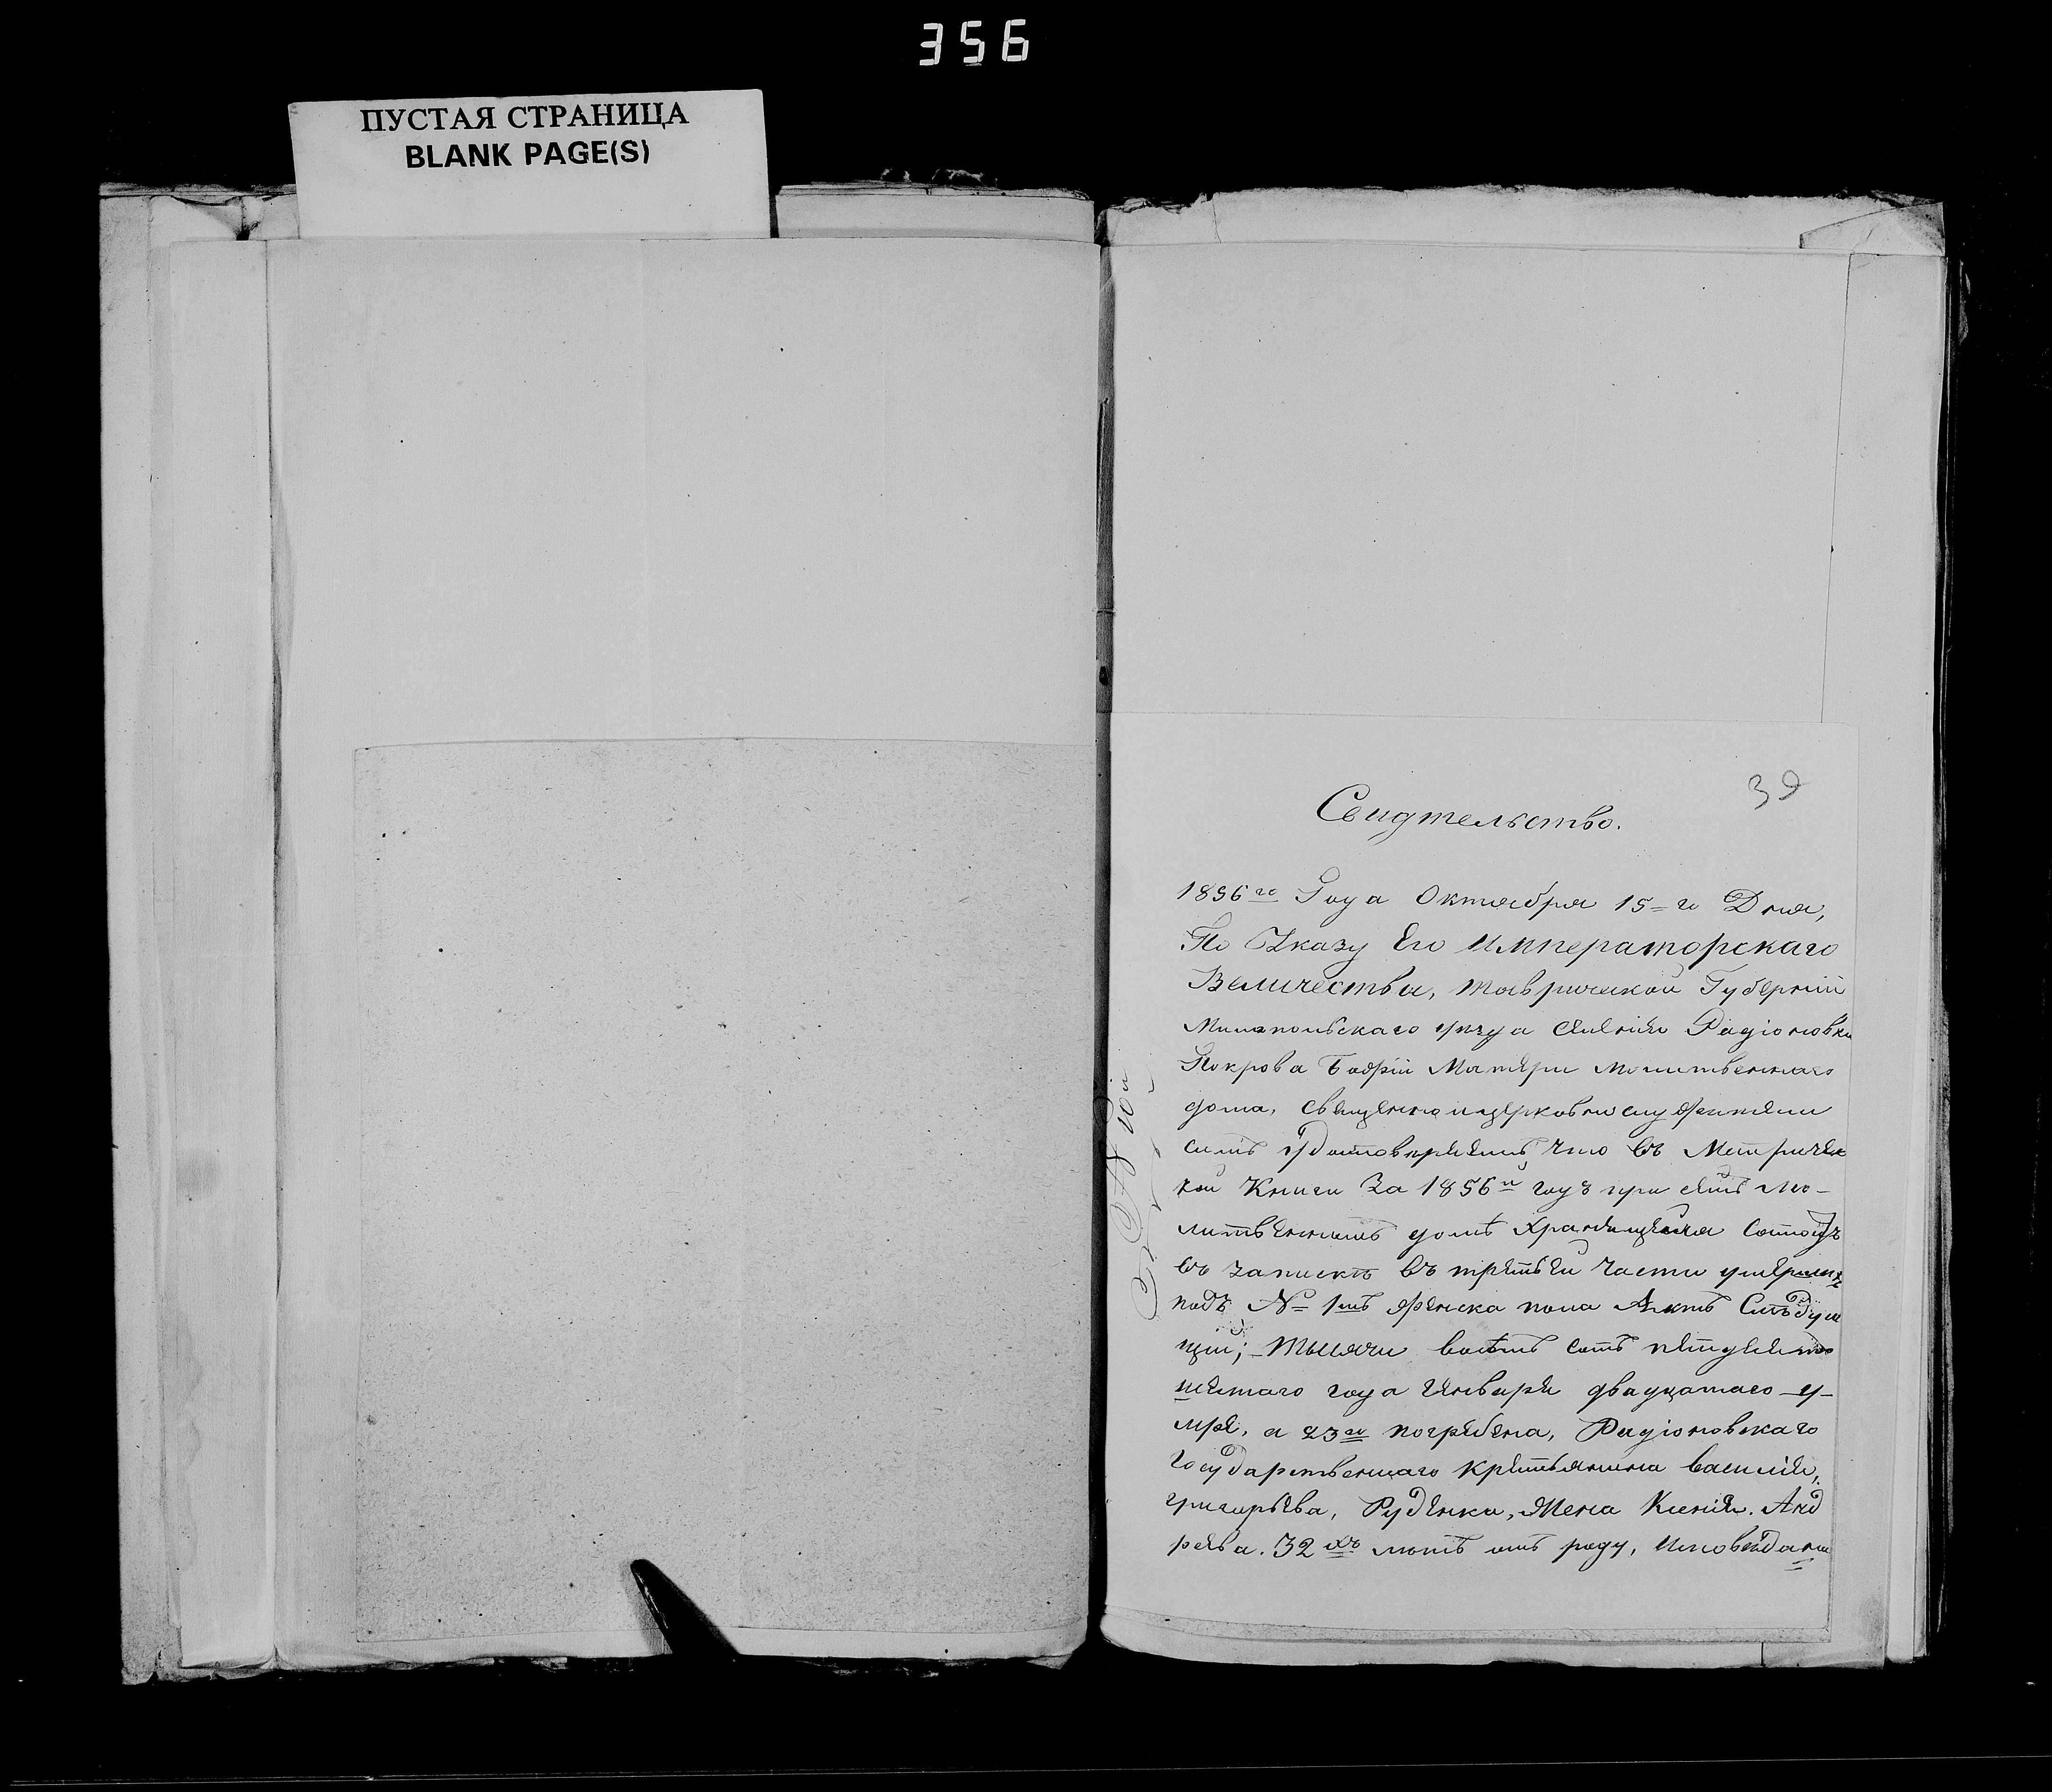 356
ПУСТАЯ СТРАНИЦА
BLANK PAGE(S)
39
Свидтельство.
1856го Года Октября 15=го Дня,
По Указу Его Императорскаго
Величества, таврической Губерніи
Милитопольскаго уизда Силенія Радіоновки
Покрова Бодріи Матери молитвеннаго
дома, священно и церковно служители
симъ удостовериемъ, что въ Метричес
кой Книги За 1856й годъ при семъ мо-
литвенномъ доме хранищейся Состоитъ
въ записке въ третьей части умершихъ
подъ № 1мъ женска пола Актъ Следую
щій; Тысячи восемъ сотъ петдесето
шестаго года Енваря двадцатаго у-
мре, а 23го погребена, Радіоновскаго
Государственнаго крестьянина василія,
григорьева, Руденка, Жена Ксенія. Анд
реева. 32хъ летъ отъ роду, Исповедана